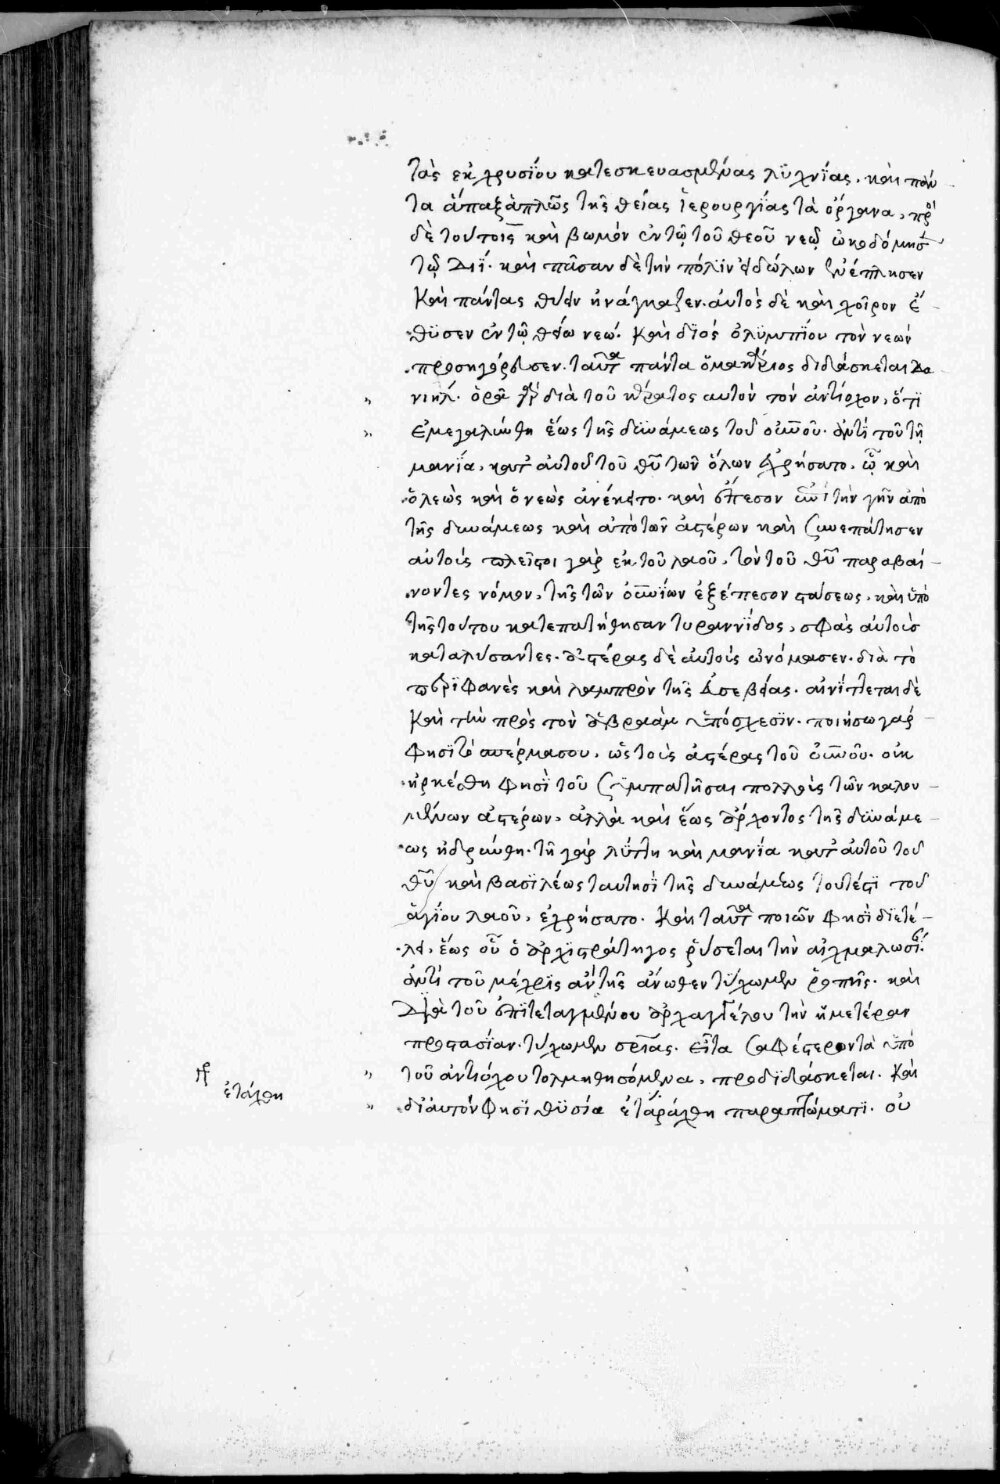 τὰς ἐκ χρυσΐου κατεσκευασμένας λϋχνΐας, καὶ πάν
τα ἁπαξαπλῶς τῆς θείας ϊερουργΐας τὰ ὄργανα, πρὸ
δὲ τούτοις καὶ βωμὸν ἐν τῷ τοῦ θεοῦ νεῷ ὠκοδόμησε
τῷ Διΐ. καὶ πᾶσαν δὲ τὴν πόλϊν εἰδώλων ἐνέπλησεν
Καὶ πάντας θύειν ἠνάγκαζεν. αὐτὸς δὲ καὶ χοῖρον ἔ
θϋσεν ἐν τῷ θείω νεώ. Καὶ διὸς ὀλϋμπΐου τὸν νεὼν
προσηγόρευσεν. ταῦτα πάντα ὁ μακάριος διδάσκεται Δα
νιήλ. ὁρᾶ γὰρ διὰ τοῦ κέρατος αυτὸν τὸν ἀντίοχον, ὅτϊ
Ἐμεγαλύνθη ἕως τῆς δϋνάμεως τοῦ οὐνοῦ. ἀντὶ τοῦ τῆ
μανΐα, κατ αὐτοῦ τοῦ θῦ τῶν ὅλων ἐχρήσατο. ὧ καὶ
ὅλεὼς καὶ ὁ νεὼς ἀνέκειτο. καὶ ἔπεσον ἐπὶ τὴν γῆν ἀπὸ
τῆς δυνάμεως καὶ ἀπὸ τῶν ἀστέρων καὶ συνεπάτησεν
αὐτούς πλεῖστοι γὰρ ἐκ τοῦ λαοῦ, τὸν τοῦ θῦ παραβαί
νοντες νόμον, τῆς τῶν οὐνΐων ἐξέπεσον στάσεως, καὶ ὑπὸ
τῆς τούτου κατεπατήθησαν τυραννΐδος, σφᾶς αὐτοὺσ
καταλύσαντες. ἀστέρας δὲ αὐτοὺς ὠνόμασεν. διὰ τὸ
περϊφανὲς καὶ λαμπρὸν τῆς εὐσεβείας. αἰνΐττεται δὲ
Καὶ τὴν πρὸς τὸν ἀβραὰμ ὑπόσχεσϊν. ποιήσω γάρ
φησϊ τὸ σπέρμα σου, ὡς τοὺς ἀστέρας τοῦ οὐνοῦ. οὐκ
ἠρκέσθη φησϊ τοῦ συμπατῆσαι πολλοὺς τῶν καλου
μένων ἀστέρων, ἀλλὰ καὶ ἕως ἄρχοντος τῆς δϋνάμε
ως ἡδρύνθη. τῆ γὰρ λύττη καὶ μανία κατ αὐτοῦ τοῦ
θῦ καὶ βασϊλέως ταυτησϊ τῆς δυνάμεως τουτέστϊ τοῦ
ἁγΐου λαοῦ, ἐχρήσατο. Καὶ ταῦτα ποιῶν φησὶ διετέ
λει, ἕως οὗ ὁ ἀρχϊστράτηγος ῥύσεται τὴν αἰχμαλωσΐ
ἀντὶ τοῦ μέχρϊς ἂν τῆς ἄνωθεν τύχωμεν ῥοπῆς. καὶ
Διὰ τοῦ ἐπϊτεταγμένου ἀρχαγγέλου τὴν ἡμετέραν
προστασΐαν, τύχωμεν σρΐας. εἶτα σαφέστερον τὰ ὑπὸ
τοῦ ἀντιόχου τολμηθησόμενα, προδϊδάσκεται. Καὶ
δι αὐτόν φησϊ θϋσία ἐταράχθη παραπτώματϊ. οὐ
ἐτάχθη